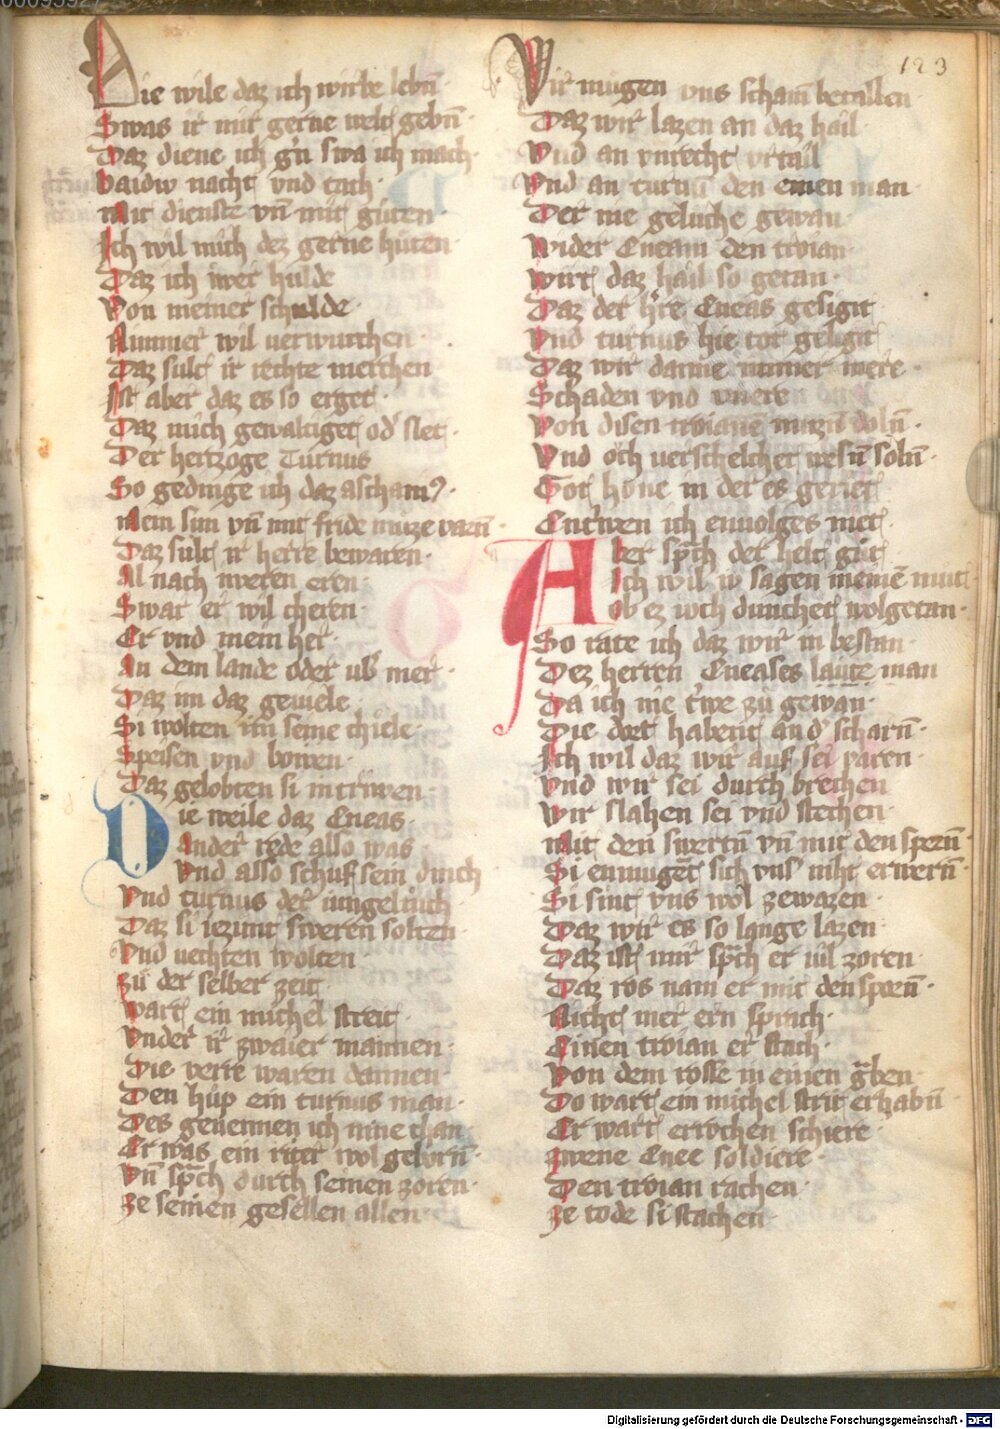 00095927
123
Die wile daz ich wirbe lebn̄
Swas ir mir gerne welt gebn̄
Daz diene ich gn̄ swa ich mach
baidiw nacht vnd tach
Mit dienste vn̄ mit gůten
Ich wil mich dez gerne hůten
Daz ich iwer hulde
Von meiner schulde
Nimmer wil verwurchen
Daz sult ir rechte merchen
Ist aber daz es so erget
Daz mich gewaltiget od' slet
Der hertzoge Turnus
So gedinge ich daz
Mein sun vn̄ mit fride muze varn̄
Daz sult ir herre bewaren
Al nach iweren eren
Swar er wil cheren
Er vnd mein her
An dem lande oder ub' mer
Daz im daz geviele
Si wolten im seine chiele
Speisen vnd
Daz gelobten si in triwen
Die weile daz Eneas
Ander rede also was
Vnd also schuf sein dinch
Vnd turnus der iungelinch
Daz si iezunt sweren solten
Vnd vechten wolten
zů der selber zeit
wart ein michel streit
Vnder ir zwaier mannen
Die verre waren dannen
Den hůp ein turnus man
Des genennen ich nine chan
Er was ein riter wol geborn̄
Vn̄ sp̄ch durch seinen zoren
ze seinen gesellen allen
Wir mugen vns scham
Daz wir lazen an daz hail
Vnd an vnrecht vrtail
Vnd an turnū den einen man
Der nie geluche gewan
Wider Eneam den troian
Wirt daz hail so getan
Daz der h're Eneas gesigit
Vnd turnus hie tot geligit
Daz wir danne immer mere
Schaden vnd vnere
Von disen troianē muzn̄ doln̄
Vnd och
Got hone in der es geriet
Entriwen ich envolges niet
Aber sp̄ch der helt gůt
Ich wil iv sagen meinē mut
Ob ez ivch dunchet wolgetan
So rate ich daz wir in bestan
Dez herren Eneases laute man
Da ich nie triwe zů gewan
Die dort habent and' scharn̄
Ich wil daz wir auf sei varen
Vnd wir sei durch brechen
Wir slahen sei vnd stechen
Mit den swertn̄ vn̄ mit den spern̄
Si enmugēt sich vns' niht erwern̄
Si sint vns wol zewazen
Daz wir es so lange lazen
Daz ist mir sp̄ch er vil zoren
Daz ros nam er mit den sporn̄
Nicht mer ern sprach
Einen troian er stach
Von dem rosse in einen g̊ben
Do wart ein michel strit erhabn̄
Er wart errochen schiere
zwene Enee soldiere
Den troian rachen
ze tode si stachen
Digitalisierung gefördert durch die Deutsche Forschungsgemeinschaft - DFG